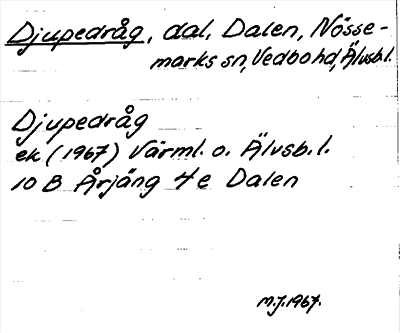 Djupedråg, dal, Dalen, Nösse-
marks sn, Vedbo hd, Älvsb.l.
Djupedråg
ek (1967) Värml. o. Älvsb.l.
10 B Årjäng 4e Dalen
M.J.1967.